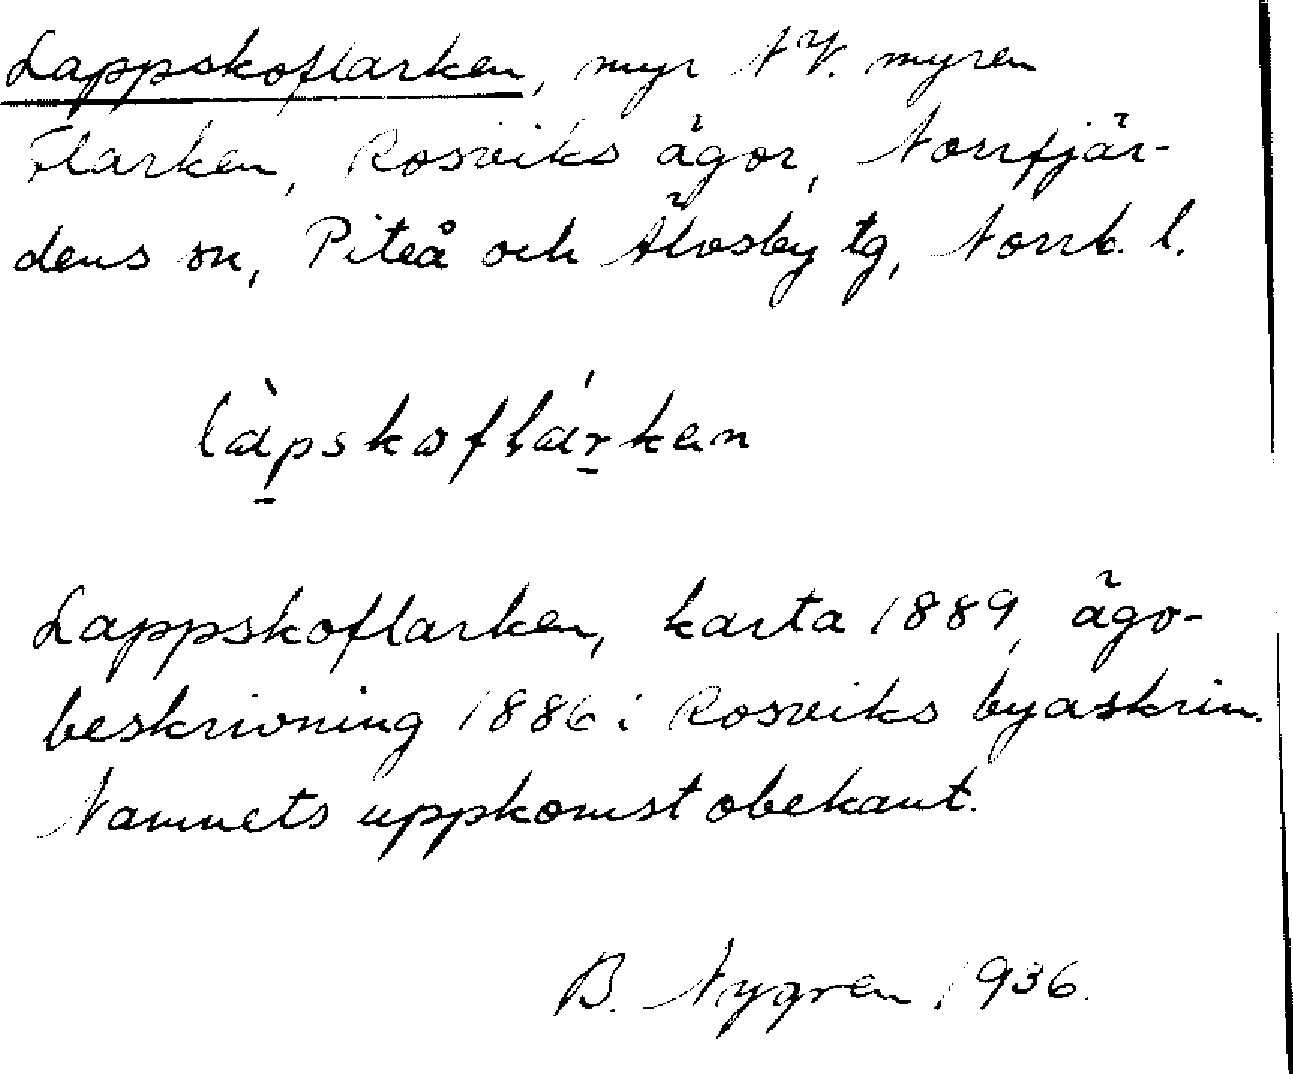 Lappskoflarken, myr NV. myren
Flarken, Rosviks ägor, Norrfjär-
dens sn, Piteå och Älvsby tg, Norrb. l.
làpskoflárken
Lappskoflarken, karta 1889, ägo-
beskrivning 1886 i Rosviks byaskrin.
Namnets uppkomst obekant.
B. Nygren 1936.